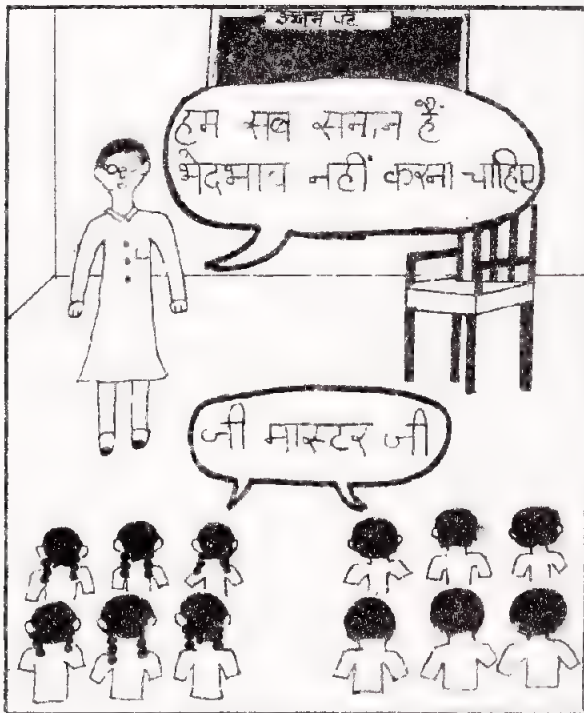 हम सब समान हैं
भेदभाव नहीं करना चाहिए
जी मास्टर जी